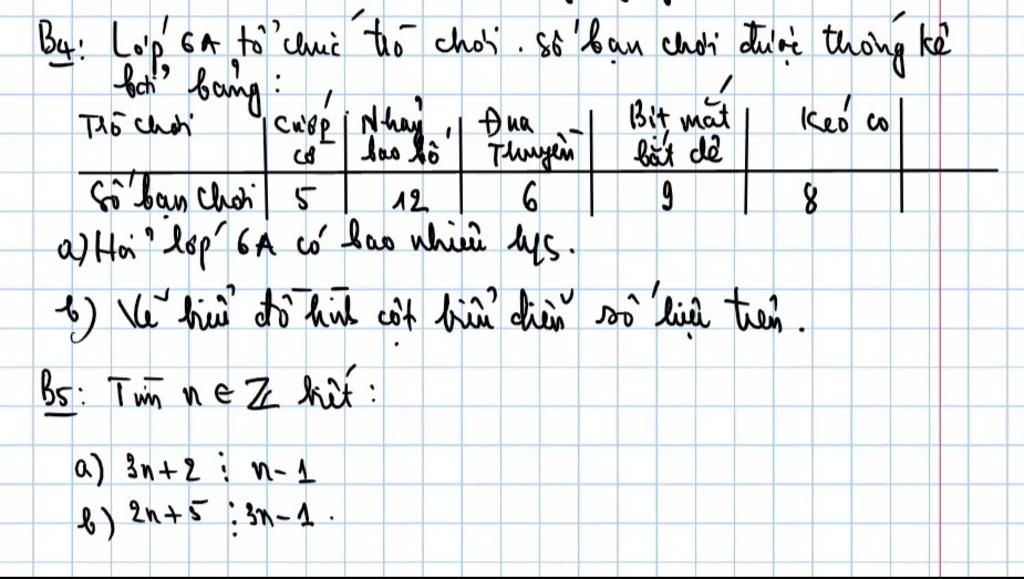 B4: Lớp 6A tổ chức trò chơi. Số bạn chơi được thống kê
bởi bảng:
Trò chơi | Cướp cờ | Nhảy bao bố | Đua Thuyền | Bịt mắt bắt dê | Kéo co
Số bạn chơi | 5 | 12 | 6 | 9 | 8
a) Hỏi lớp 6A có bao nhiêu h/s.
b) Vẽ biểu đồ hình cột biểu diễn số liệu trên.
B5: Tìm n ∈ Z biết:
a) 3n+2 ⋮ n-1
b) 2n+5 ⋮ 3n-1.